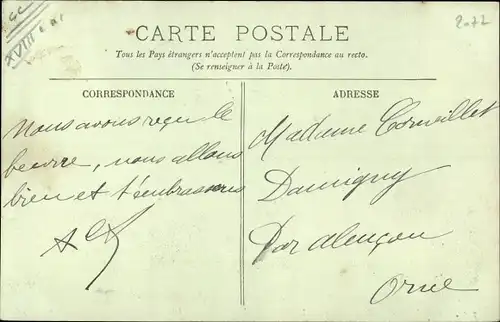 GC
XVIII
2072
CARTE POSTALE
Tous les Pays étrangers n'acceptent pas la Correspondance au recto.
(Se renseigner à la Poste).
CORRESPONDANCE
Nous avons reçu le
beurre, nous allons
bien et t'embrassons
ADRESSE
Madame Corneillet
Damigny
Par Alençon
Orne